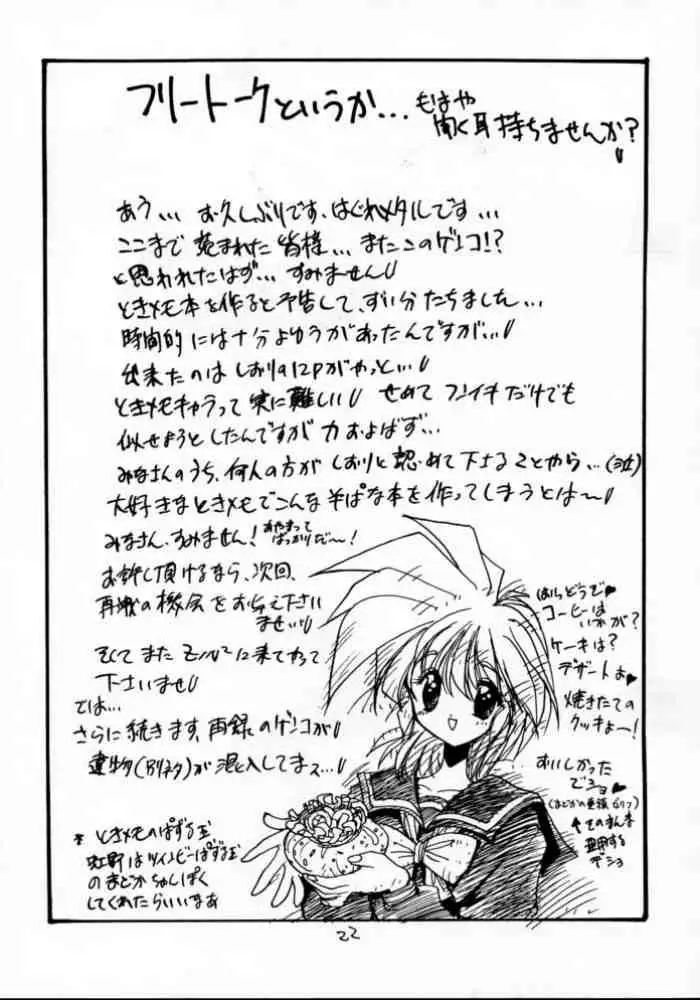 フリートークというか… もはや
聞く耳持ちませんか?
あう… お久しぶりです、はぐれメタルです…
ここまで 読まれた 皆様… またこのゲンコ!?
と思われたはず… すみません
ときメモ本を作ると予告して、ずい分たちました…
時間的には十分よゆうがあったんですが…
出来たのは しおりの12Pがやっと…
ときメモキャラって 実に難しい せめて フンイキ だけでも
似せようとしたんですが 力およばず…
みなさんのうち、何人の方が しおりと認めて下さることやら…
大好きなときメモでこんな そばな本を作ってしまうとは〜
みなさん、すみません! あやまって
ばっかりだ〜!
お許し頂けるなら、次回、
再戦の機会を お与え下さい
ませ
そしてまた に来てやって
下さいませ
では…
さらに続きます、再録のゲンコが
遺物(別ネタ)が 混入してます…
* ときメモのぱずる玉
虹野はツインビーぱずる玉
の まどか ちゅしぱく
してくれたらいいなあ
はい、どうぞ♥
コーヒーは
いかが?
ケーキは?
デザートよ♥
焼きたての
クッキよ〜!
おいしかった
でショ♥
(まどかの セリフ)
↑そのまんま
するデショ
22